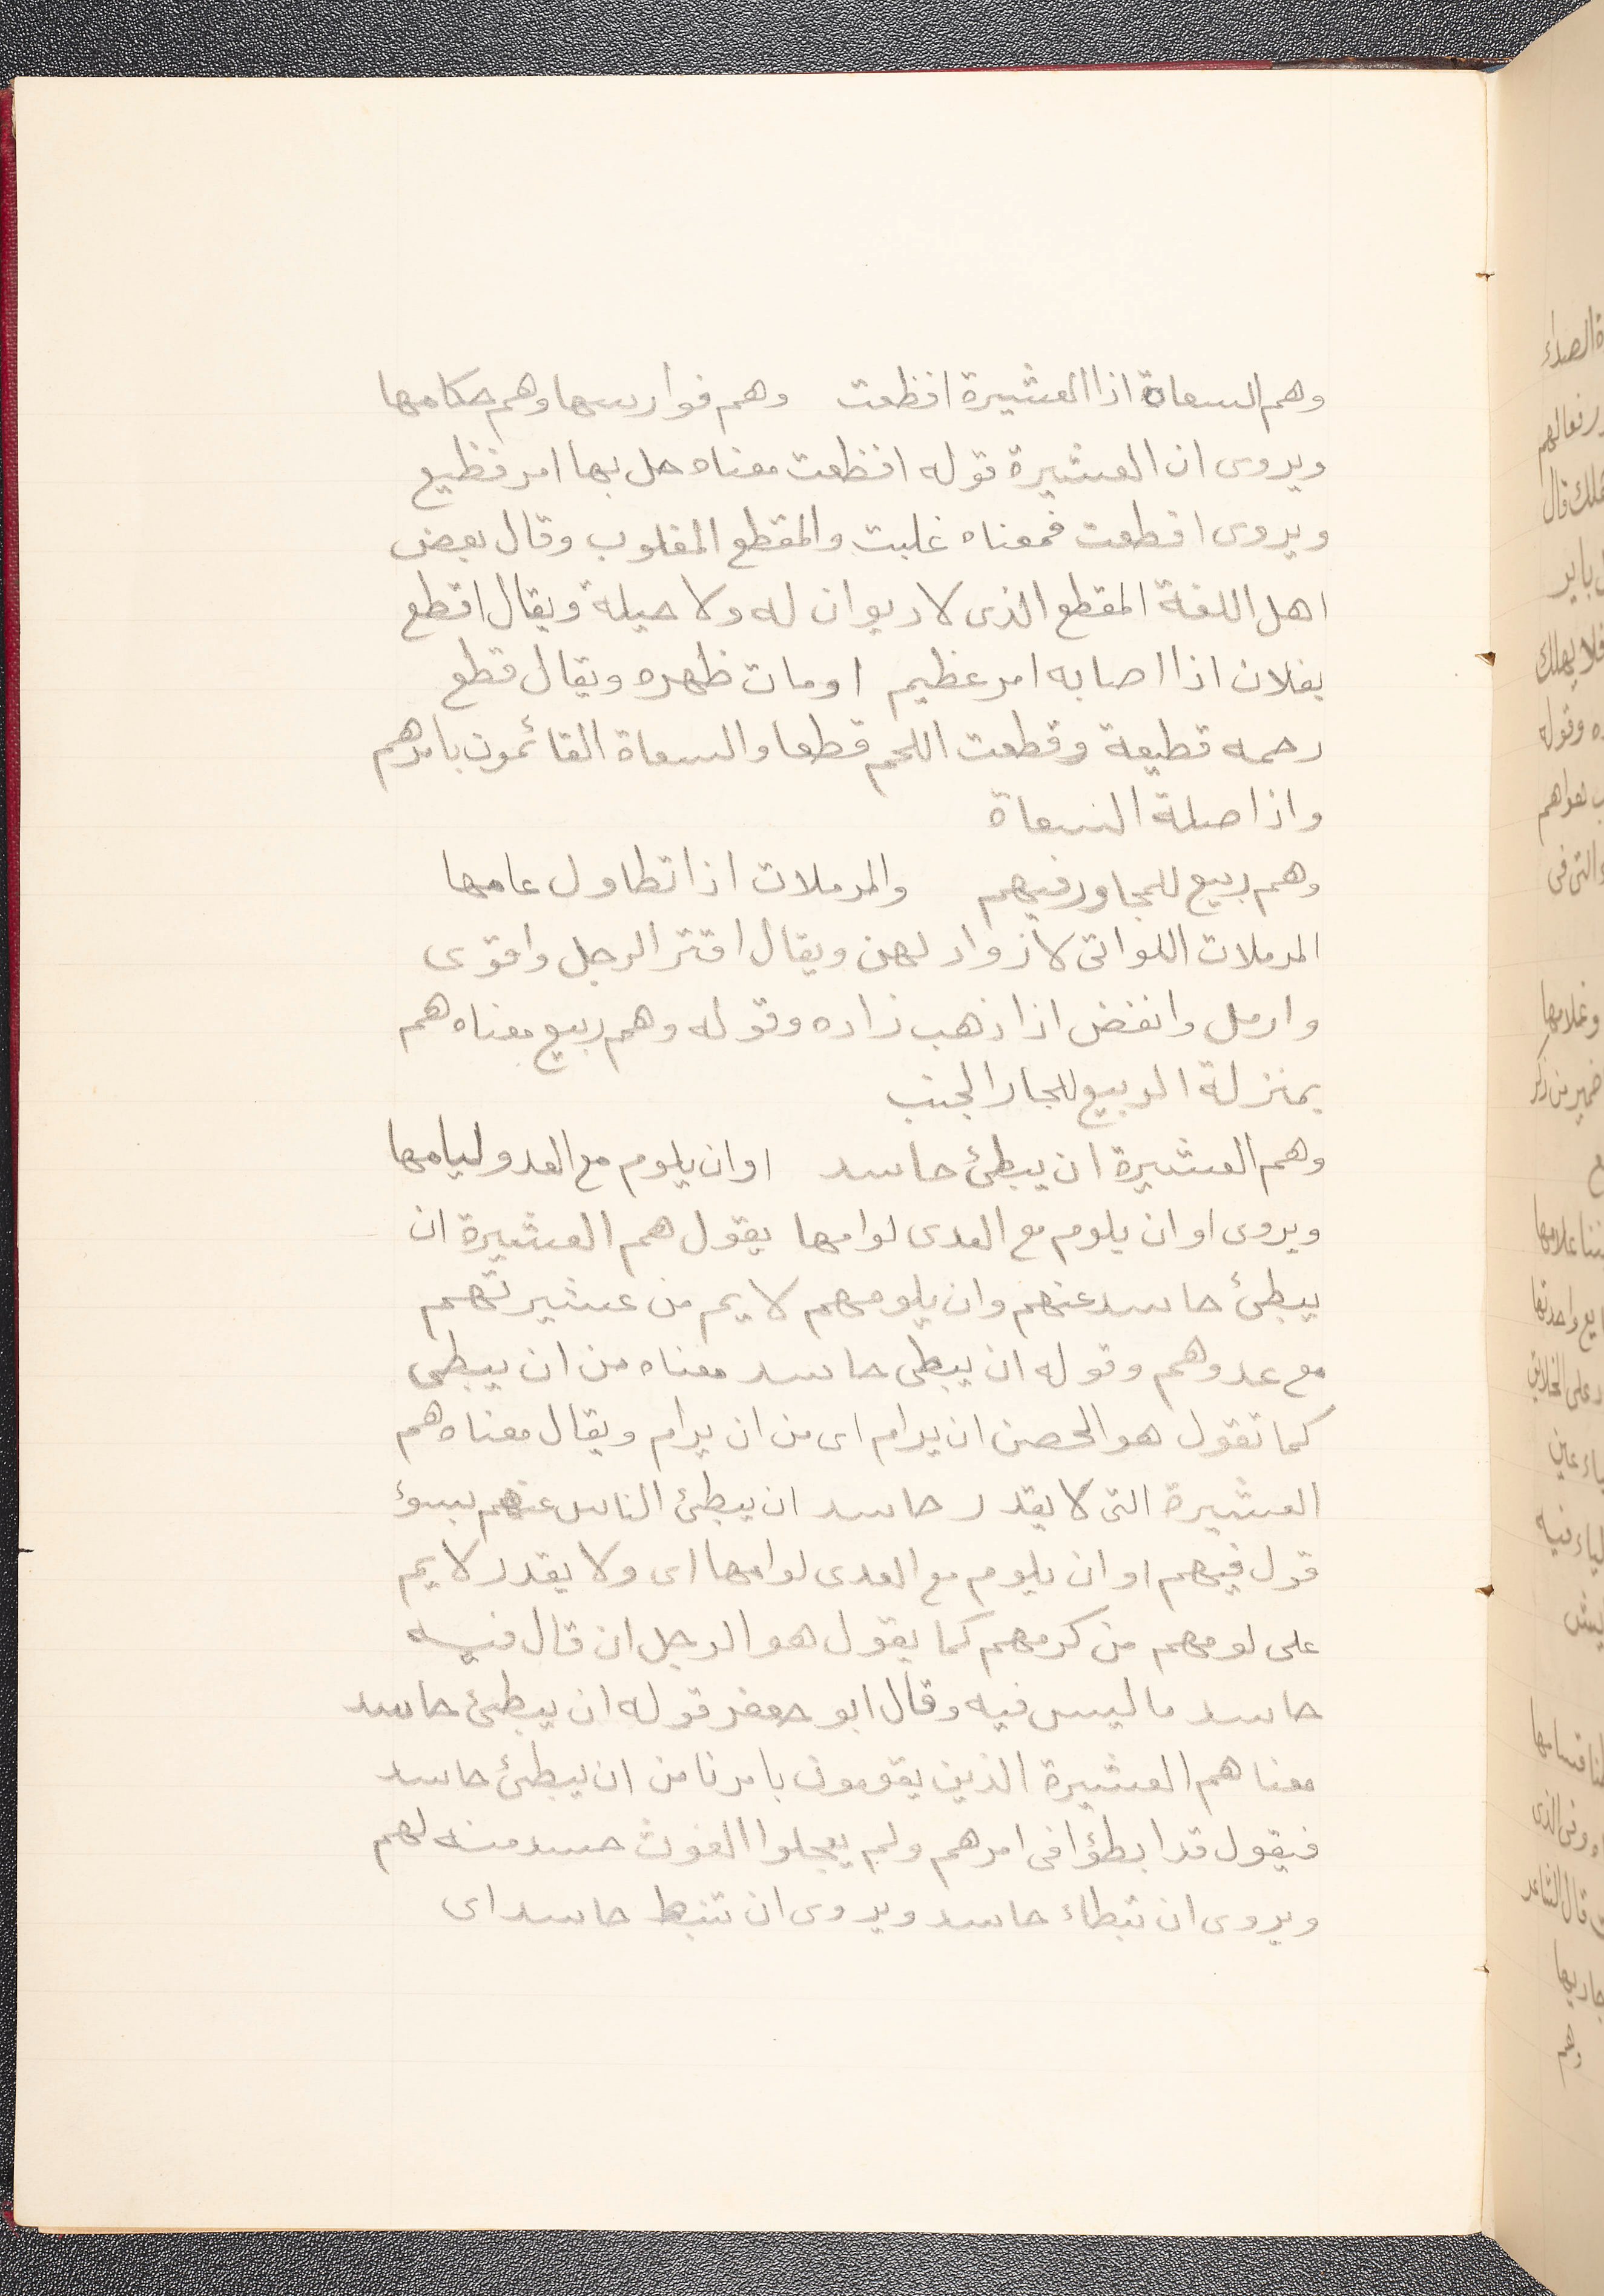 وهم السعاة اذا العشيرة افظعت وهم فوارسها وهم حكامها
ويروى ان العشيرة قوله افظعت معناه حل بها امر فظيع
ويروى اقطعت فمعناه غلبت والمقطع المغلوب وقال بعض
اهل اللغة المقطع الذى لا ديوان له ولا حيلة ويقال اقطع
بفلان اذا اصابه امر عظيم او مات ظهره ويقال قطع
رحمه قطيعة وقطعت اللحم قطعا والسعاة القائمون بامرهم
واذا صلة السعاة
وهم ربيع للمجاور فيهم والمرملات اذا تطاول عامها
المرملات اللواتى لا ازواد لهن ويقال اقتر الرجل واقوى
وارمل وانفض اذا ذهب زاده وقوله وهم ربيع معناه هم
بمنزلة الربيع للجار الجنب
وهم العشيرة ان يبطئ حاسد او ان يلوم مع العدو ليامها
ويروى او ان يلوم مع العدى لوامها يقول هم العشيرة ان
يبطئ حاسد عنهم وان يلومهم لايم من عشيرتهم
مع عدوهم وقوله ان يبطى حاسد معناه من ان يبطى
كما تقول هو الحصن ان يرام اى من ان يرام ويقال معناه هم
العشيرة التى لا يقدر حاسد ان يبطئ الناس عنهم بسوء
قول فيهم او ان يلوم مع العدى لوامها اى ولا يقدر لايم
على لومهم من كرمهم كما يقول هو الرجل ان قال فيه
حاسد ما ليس فيه وقال ابو جعفر قوله ان يبطئ حاسد
معنا هم العشيرة الذين يقومون بامرنا من ان يبطئ حاسد
فيقول قد ابطؤا فى امرهم ولم يعجلوا الغوث حسد منه لهم
ويروى ان تبطاء حاسد ويروى ان تنبط حاسد اى